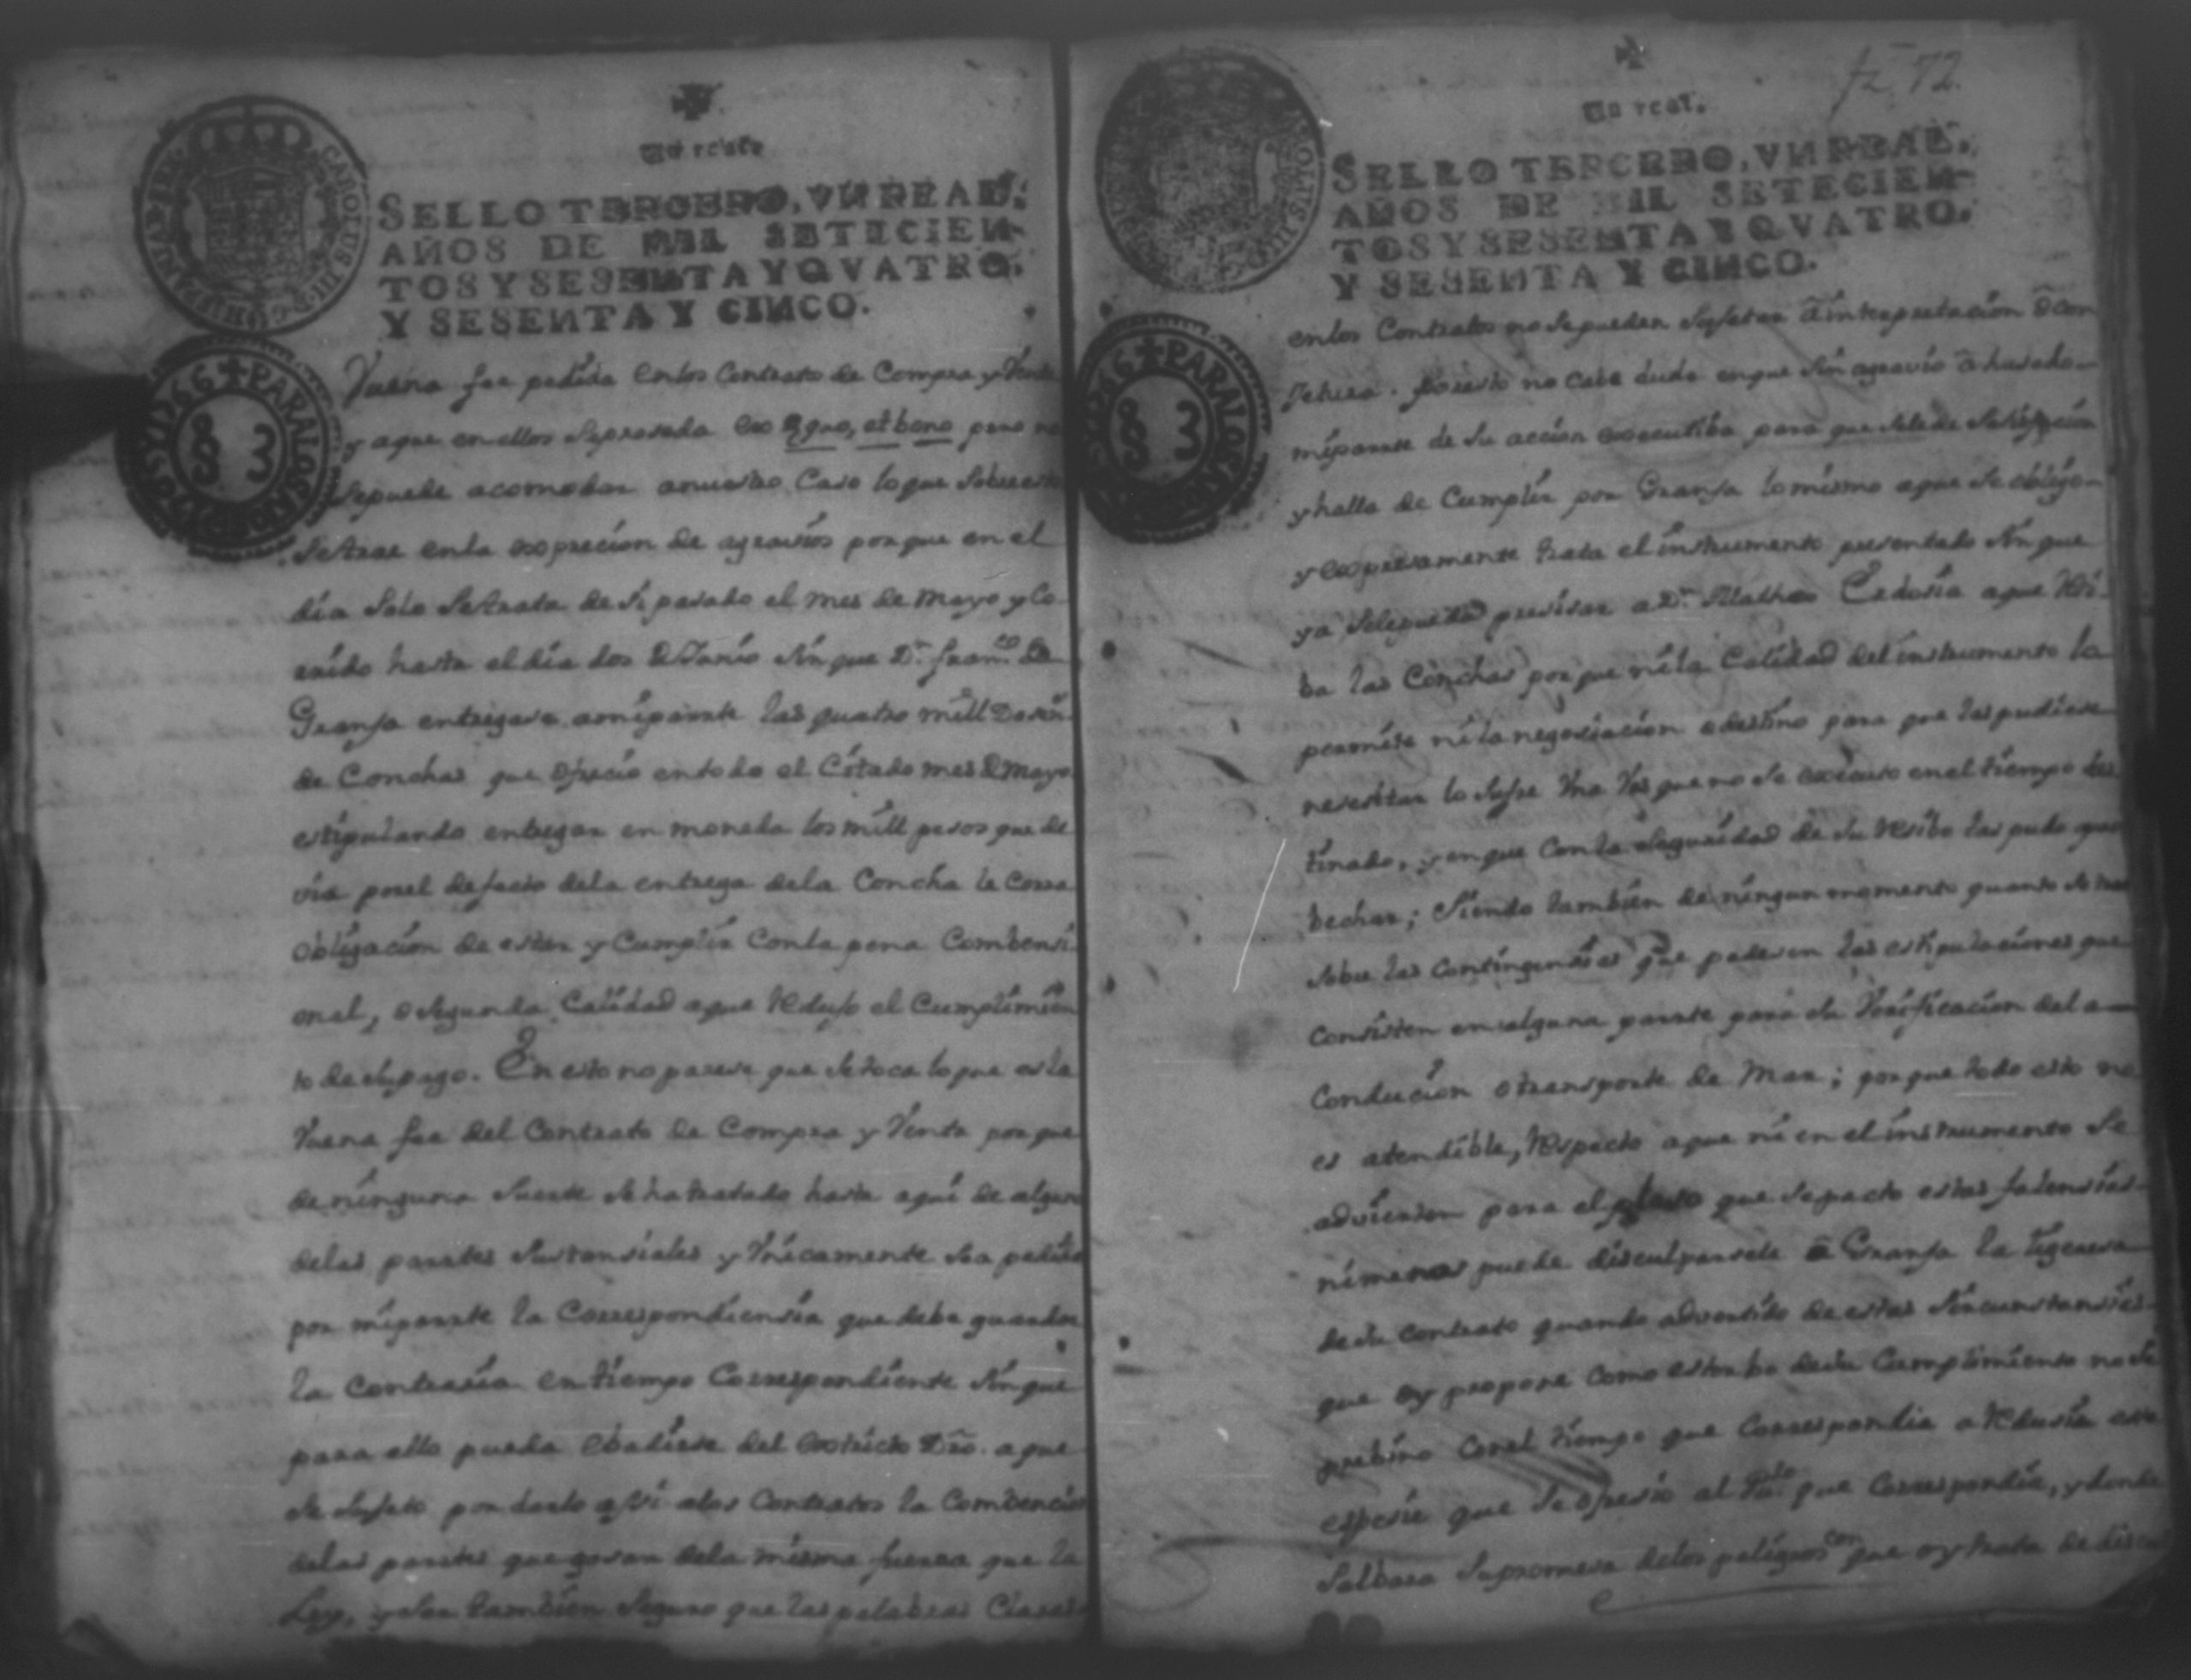 Un real.
SELLO TERCERO, VN REAL,
AÑOS DE MIL SETECIEN-
TOS Y SESENTA Y QVATRO,
Y SESENTA Y CINCO.
CAROLUS III D G HISPANIAR REX
PARA LOS AÑOS DE 1765 Y 1766
S 3 S
Vuena fee pedida en los Contrato de Compra y Venta
y aque en ellos Seproseda exo equo, et bono pero no
Sepuede acomodar anuestro Caso loque Sobre esto
Setrae enla exprecion de agravios porque en el
dia Solo Setrata de Si pasado el mes de Mayo y Co
rrido hasta el dia dos de Junio Sin que Dn. Franco. de
Granja entregara amiparte las quatro mill
de Conchas que ofrecio entodo el Citado mes de Mayo
estipulando entregar en moneda los mill pesos que de
via porel defecto dela entrega dela Concha le Corra
obligacion de estar y Cumplir Conla pena Combensi
onal, o Segunda Calidad aque Redujo el Cumplimien
to de el pago. En esto no parese que Setoca loque esla
Vuena fee del Contrato de Compra y Venta porque
de ninguna Suerte Seha tratado hasta aqui de alguna
delas partes Sustansiales y Unicamente Sea pedido
por miparte la Correspondiensia que debe guardar
la Contraria en tiempo Correspondiente Sinque
para ello pueda Ebadirse del extricto Dro. aque
Se Sujeto por darle asi alos Contratos la Combencion
delas partes que gosan dela misma fuersa que la
Ley, y Ser tambien Seguro que las palabras Claras
72
Un real.
SELLO TERCERO, VN REAL,
AÑOS DE MIL SETECIEN-
TOS Y SESENTA Y QVATRO,
Y SESENTA Y CINCO.
PARA LOS AÑOS DE 1765 Y 1766
S 3 S
enlos Contratos no Sepueden Sujetar a interpretacion o con
jetura. por esto no cabe duda enque Sin agravio a husado
miparte de Su accion executiba para que Sele de Satisfacion
y halla de Cumplir por Granja lo mismo aque Se obligo
y expresamente trata el instrumento presentado Sin que
ya Selepueda presisar a Dn. Matheo aque Resi
ba las Conchas porque nila Calidad del instrumento lo
permite nila negosiacion o destino para que las pudiese
nesesitar lo Sufre Una Ves que no Se executo en el tiempo des
tinado, y enque Conla Seguridad de Su Resibo las pudo
bechar; Siendo tambien de ningun momento quanto Se trae
Sobre las Contingensias que padesen las estipulaciones que
Consisten en alguna parte para Su Verificacion del a
Conducion o transporte de Mar; porque todo esto no
es atendible, Respecto aque ni en el instrumento Se
advierten para el plaso que Sepacto estas falensias
nimenos puede disculparsele a Granja la ligeresa
de Su Contrato quando advertido de estas Sircunstansias
que oy propone Como estorbo de Su Cumplimiento no Se
prebino Conel tiempo que Correspondia a Redusir esta
espesie que Se ofresio al que Correspondia, y donde
Salbara Supromesa delos peligros con que oy trata de discul